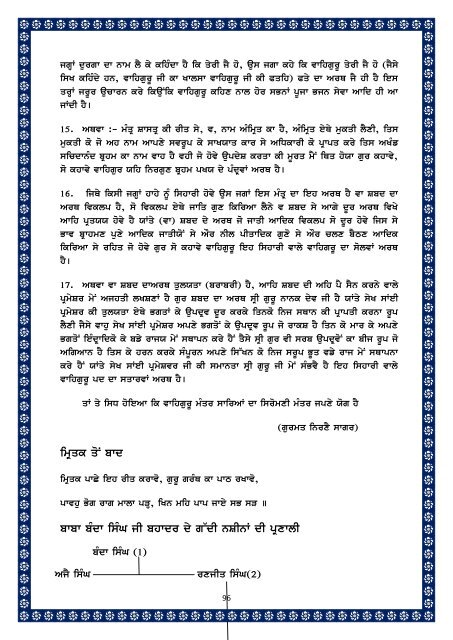 ਜਗ੍ਹਾਂ ਦੁਰਗਾ ਦਾ ਨਾਮ ਲੈ ਕੇ ਕਹਿੰਦਾ ਹੈ ਕਿ ਤੇਰੀ ਜੈ ਹੋ, ਉਸ ਜਗਾ ਕਹੇ ਕਿ ਵਾਹਿਗੁਰੂ ਤੇਰੀ ਜੈ ਹੋ (ਜੈਸੇ
ਸਿਖ ਕਹਿੰਦੇ ਹਨ, ਵਾਹਿਗੁਰੂ ਜੀ ਕਾ ਖਾਲਸਾ ਵਾਹਿਗੁਰੂ ਜੀ ਕੀ ਫਤਹਿ) ਫਤੇ ਦਾ ਅਰਥ ਜੈ ਹੀ ਹੈ ਇਸ
ਤਰ੍ਹਾਂ ਜਰੂਰ ਉਚਾਰਨ ਕਰੇ ਕਿਉਂਕਿ ਵਾਹਿਗੁਰੂ ਕਹਿਣ ਨਾਲ ਹੋਰ ਸਭਨਾਂ ਪੂਜਾ ਭਜਨ ਸੇਵਾ ਆਦਿ ਹੀ ਆ
ਜਾਂਦੀ ਹੈ।
15. ਅਥਵਾ :- ਮੰਤ੍ਰ ਸ਼ਾਸਤ੍ਰ ਕੀ ਰੀਤ ਸੇ, ਵ, ਨਾਮ ਅੰਮ੍ਰਿਤ ਕਾ ਹੈ, ਅੰਮ੍ਰਿਤ ਏਥੇ ਮੁਕਤੀ ਲੈਣੀ, ਤਿਸ
ਮੁਕਤੀ ਕੇ ਜੋ ਅਹ ਨਾਮ ਆਪਣੇ ਸਵਰੂਪ ਕੇ ਸਾਖਯਾਤ ਕਾਰ ਸੇ ਅਧਿਕਾਰੀ ਕੇ ਪ੍ਰਾਪਤ ਕਰੇ ਤਿਸ ਅਖੰਡ
ਸਚਿਦਾਨੰਦ ਬ੍ਰਹਮ ਕਾ ਨਾਮ ਵਾਹ ਹੈ ਵਹੀ ਜੋ ਹੋਵੇ ਉਪਦੇਸ਼ ਕਰਤਾ ਕੀ ਮੂਰਤ ਮੈਂ ਥਿਤ ਹੋਯਾ ਗੁਰ ਕਹਾਵੇ,
ਸੋ ਕਹਾਵੇ ਵਾਹਿਗੁਰ ਯਹਿ ਨਿਰਗੁਣ ਬ੍ਰਹਮ ਪਖਯ ਦੇ ਪੰਦ੍ਰਵਾਂ ਅਰਥ ਹੈ।
16. ਜਿਥੇ ਕਿਸੀ ਜਗ੍ਹਾਂ ਹਾਹੇ ਨੂੰ ਸਿਹਾਰੀ ਹੋਵੇ ਉਸ ਜਗਾਂ ਇਸ ਮੰਤ੍ਰ ਦਾ ਇਹ ਅਰਥ ਹੈ ਵਾ ਸ਼ਬਦ ਦਾ
ਅਰਥ ਵਿਕਲਪ ਹੈ, ਸੋ ਵਿਕਲਪ ਏਥੇ ਜਾਤਿ ਗੁਣ ਕਿਰਿਆ ਲੈਨੇ ਵ ਸ਼ਬਦ ਸੇ ਆਗੇ ਦੂਰ ਅਰਥ ਵਿਖੇ
ਆਹਿ ਪ੍ਰਤਯਯ ਹੋਵੇ ਹੈ ਯਾਂਤੇ (ਵਾ) ਸ਼ਬਦ ਦੇ ਅਰਥ ਜੋ ਜਾਤੀ ਆਦਿਕ ਵਿਕਲਪ ਸੇ ਦੂਰ ਹੋਵੇ ਜਿਸ ਸੇ
ਭਾਵ ਬ੍ਰਾਹਮਣ ਪੁਣੇ ਆਦਿਕ ਜਾਤੀਯੋਂ ਸੇ ਔਰ ਨੀਲ ਪੀਤਾਦਿਕ ਗੁਣੋ ਸੇ ਔਰ ਚਲਣ ਬੈਠਣ ਆਦਿਕ
ਕਿਰਿਆ ਸੇ ਰਹਿਤ ਜੋ ਹੋਵੇ ਗੁਰ ਸੋ ਕਹਾਵੇ ਵਾਹਿਗੁਰੂ ਇਹ ਸਿਹਾਰੀ ਵਾਲੇ ਵਾਹਿਗਰੂ ਦਾ ਸੋਲਵਾਂ ਅਰਥ
ਹੈ।
17. ਅਥਵਾ ਵਾ ਸ਼ਬਦ ਦਾਅਰਥ ਤੁਲਯਤਾ (ਬਰਾਬਰੀ) ਹੈ, ਆਹਿ ਸ਼ਬਦ ਦੀ ਅਹਿ ਪੈ ਸੈਨ ਕਰਨੇ ਵਾਲੇ
ਪ੍ਰਮੇਸ਼ਰ ਮੇਂ ਅਜਹਤੀ ਲਖਸ਼ਣਾਂ ਹੈ ਗੁਰ ਸ਼ਬਦ ਦਾ ਅਰਥ ਸ੍ਰੀ ਗੁਰੂ ਨਾਨਕ ਦੇਵ ਜੀ ਹੈ ਯਾਂਤੇ ਸੇਖ ਸਾਂਈ
ਪ੍ਰਮੇਸ਼ਰ ਕੀ ਤੁਲਯਤਾ ਏਥੇ ਭਗਤਾਂ ਕੇ ਉਪਦ੍ਰਵ ਦੂਰ ਕਰਕੇ ਤਿਨਕੋ ਨਿਜ ਸਥਾਨ ਕੀ ਪ੍ਰਾਪਤੀ ਕਰਨਾ ਰੂਪ
ਲੈਣੀ ਜੈਸੇ ਵਾਹੁ ਸੇਖ ਸਾਂਈ ਪ੍ਰਮੇਸ਼ਰ ਅਪਣੇ ਭਗਤੋਂ ਕੇ ਉਪਦ੍ਰਵ ਰੂਪ ਜੋ ਰਾਕਸ਼ ਹੈ ਤਿਨ ਕੋ ਮਾਰ ਕੇ ਅਪਣੇ
ਭਗਤੋਂ ਇੰਦ੍ਰਾਦਿਕੋ ਕੋ ਬਡੇ ਰਾਜਯ ਮੇਂ ਸਥਾਪਨ ਕਰੇ ਹੈਂ ਤੈਸੇ ਸ੍ਰੀ ਗੁਰ ਵੀ ਸਰਬ ਉਪਦ੍ਰਵੋਂ ਕਾ ਬੀਜ ਰੂਪ ਜੋ
ਅਗਿਆਨ ਹੈ ਤਿਸ ਕੇ ਹਰਨ ਕਰਕੇ ਸੰਪੂਰਨ ਅਪਣੇ ਸਿੱਖਨ ਕੋ ਨਿਜ ਸਰੂਪ ਭੂਤ ਵਡੇ ਰਾਜ ਮੇਂ ਸਥਾਪਨਾ
ਕਰੇ ਹੈਂ ਯਾਂਤੇ ਸੇਖ ਸਾਂਈ ਪ੍ਰਮੇਸ਼ਵਰ ਜੀ ਕੀ ਸਮਾਨਤਾ ਸ੍ਰੀ ਗੁਰੂ ਜੀ ਮੇਂ ਸੰਭਵੈ ਹੈ ਇਹ ਸਿਹਾਰੀ ਵਾਲੇ
ਵਾਹਿਗੁਰੂ ਪਦ ਦਾ ਸਤਾਰਵਾਂ ਅਰਥ ਹੈ।
ਤਾਂ ਤੇ ਸਿਧ ਹੋਇਆ ਕਿ ਵਾਹਿਗੁਰੂ ਮੰਤਰ ਸਾਰਿਆਂ ਦਾ ਸਿਰੋਮਣੀ ਮੰਤਰ ਜਪਣੇ ਯੋਗ ਹੈ
(ਗੁਰਮਤ ਨਿਰਣੈ ਸਾਗਰ)
ਮ੍ਰਿਤਕ ਤੋਂ ਬਾਦ
ਮ੍ਰਿਤਕ ਪਾਛੇ ਇਹ ਰੀਤ ਕਰਾਵੋ, ਗੁਰੂ ਗਰੰਥ ਕਾ ਪਾਠ ਰਖਾਵੋ,
ਪਾਵਹੁ ਭੋਗ ਰਾਗ ਮਾਲਾ ਪੜ੍ਹ, ਖਿਨ ਮਹਿ ਪਾਪ ਜਾਏ ਸਭ ਸੜ ॥
ਬਾਬਾ ਬੰਦਾ ਸਿੰਘ ਜੀ ਬਹਾਦਰ ਦੇ ਗੱਦੀ ਨਸ਼ੀਨਾਂ ਦੀ ਪ੍ਰਣਾਲੀ
ਬੰਦਾ ਸਿੰਘ (1)
ਅਜੈ ਸਿੰਘ ਰਣਜੀਤ ਸਿੰਘ(2)
96